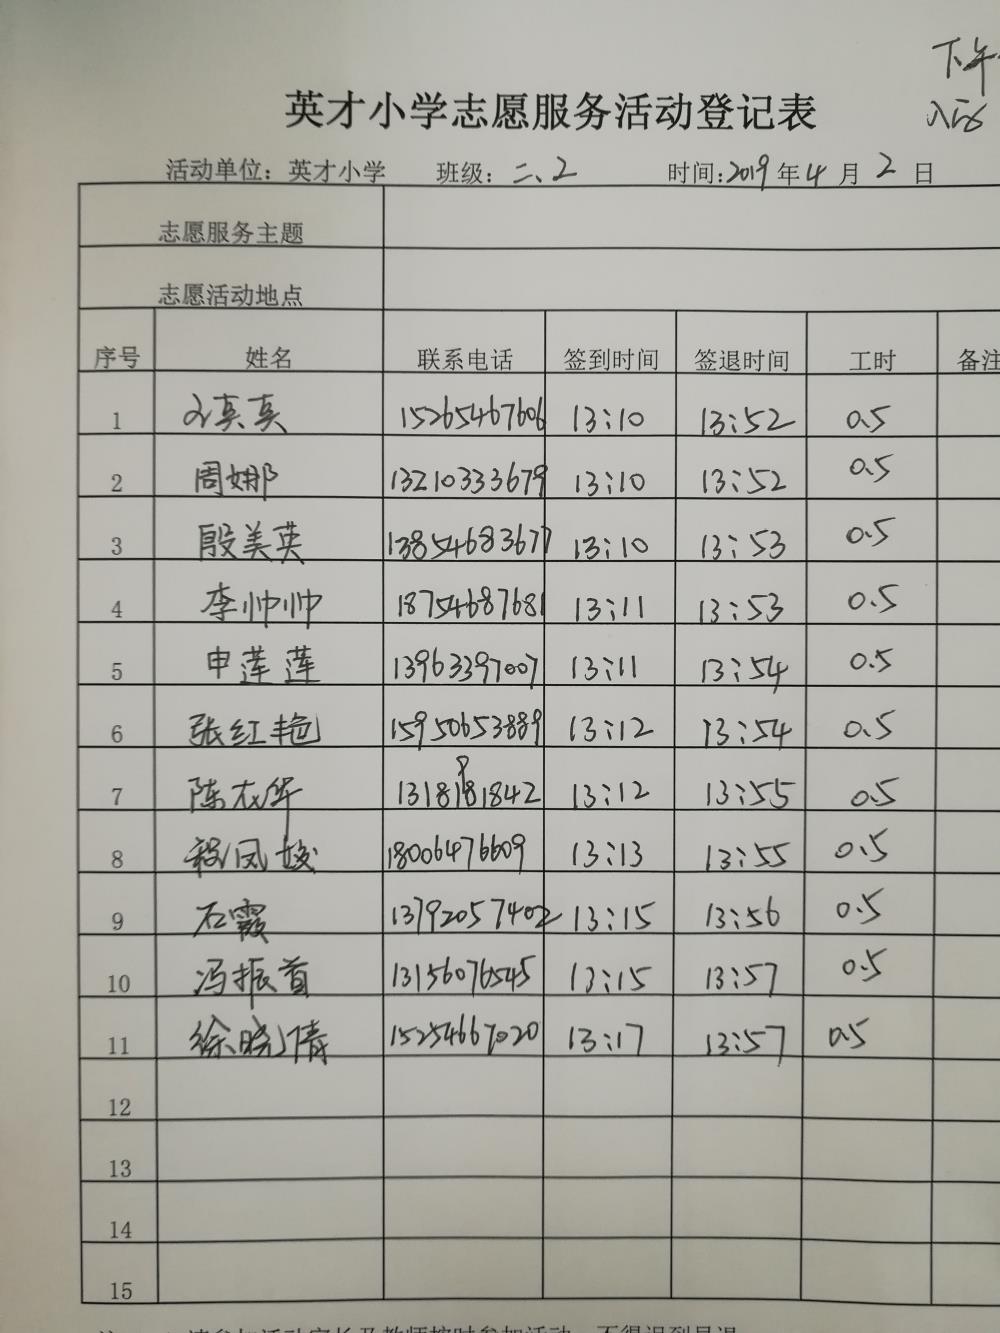 下午
英才小学志愿服务活动登记表
活动单位：英才小学 班级：二、2 时间：2019年4月2日
志愿服务主题
志愿活动地点
序号 姓名 联系电话 签到时间 签退时间 工时 备注
1 真真 15265467606 13:10 13:52 0.5
2 周娜 13210333679 13:10 13:52 0.5
3 殷美英 13854683677 13:10 13:53 0.5
4 李帅帅 18754687681 13:11 13:53 0.5
5 申莲莲 13963397007 13:11 13:54 0.5
6 张红艳 15950653889 13:12 13:54 0.5
7 13:12 13:55 0.5
8 程凤姣 18006476609 13:13 13:55 0.5
9 石霞 13792057402 13:15 13:56 0.5
10 冯振首 13156076545 13:15 13:57 0.5
11 徐晓倩 15254667020 13:17 13:57 0.5
12
13
14
15